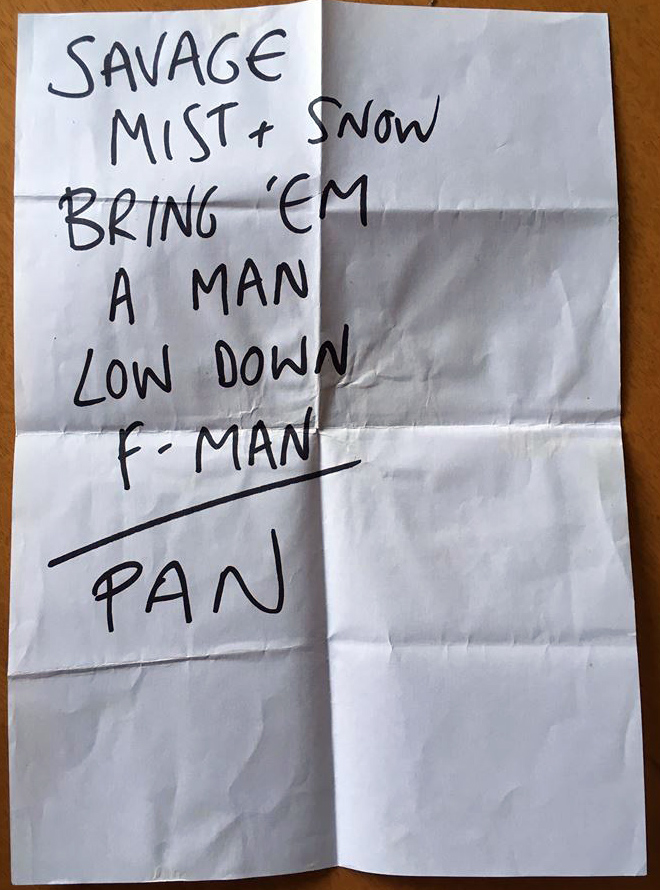 SAVAGE
MIST + SNOW
BRING 'EM
A MAN
LOW DOWN
F-MAN
PAN